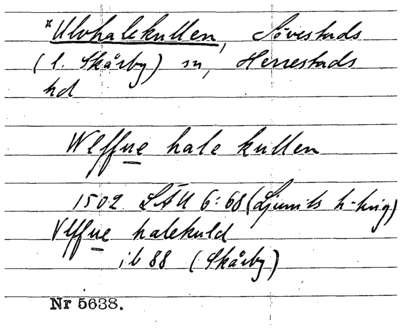 *Ulvhalekullen, Sövestads
(l. Skårby) sn, Herrestads
hd
Wlffue hale kullen
1502 LÄU 6:68 (Ljunits h-king)
Vlffue halekuld
ib 88 (Skårby)
Nr 5638.